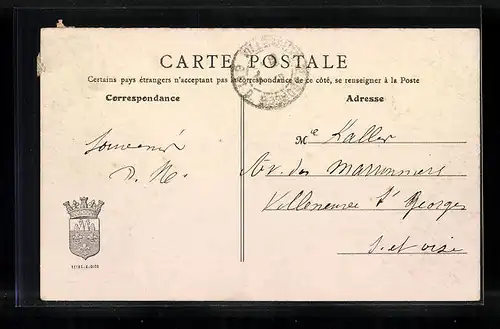 CARTE POSTALE
Certains pays étrangers n'acceptant pas la correspondance de ce côté, se renseigner à la Poste
Correspondance
Adresse
Souvenir
Mle Kaller
Av. des Marronniers
Villeneuve St Georges
S. et Oise
SEINE-&-OISE